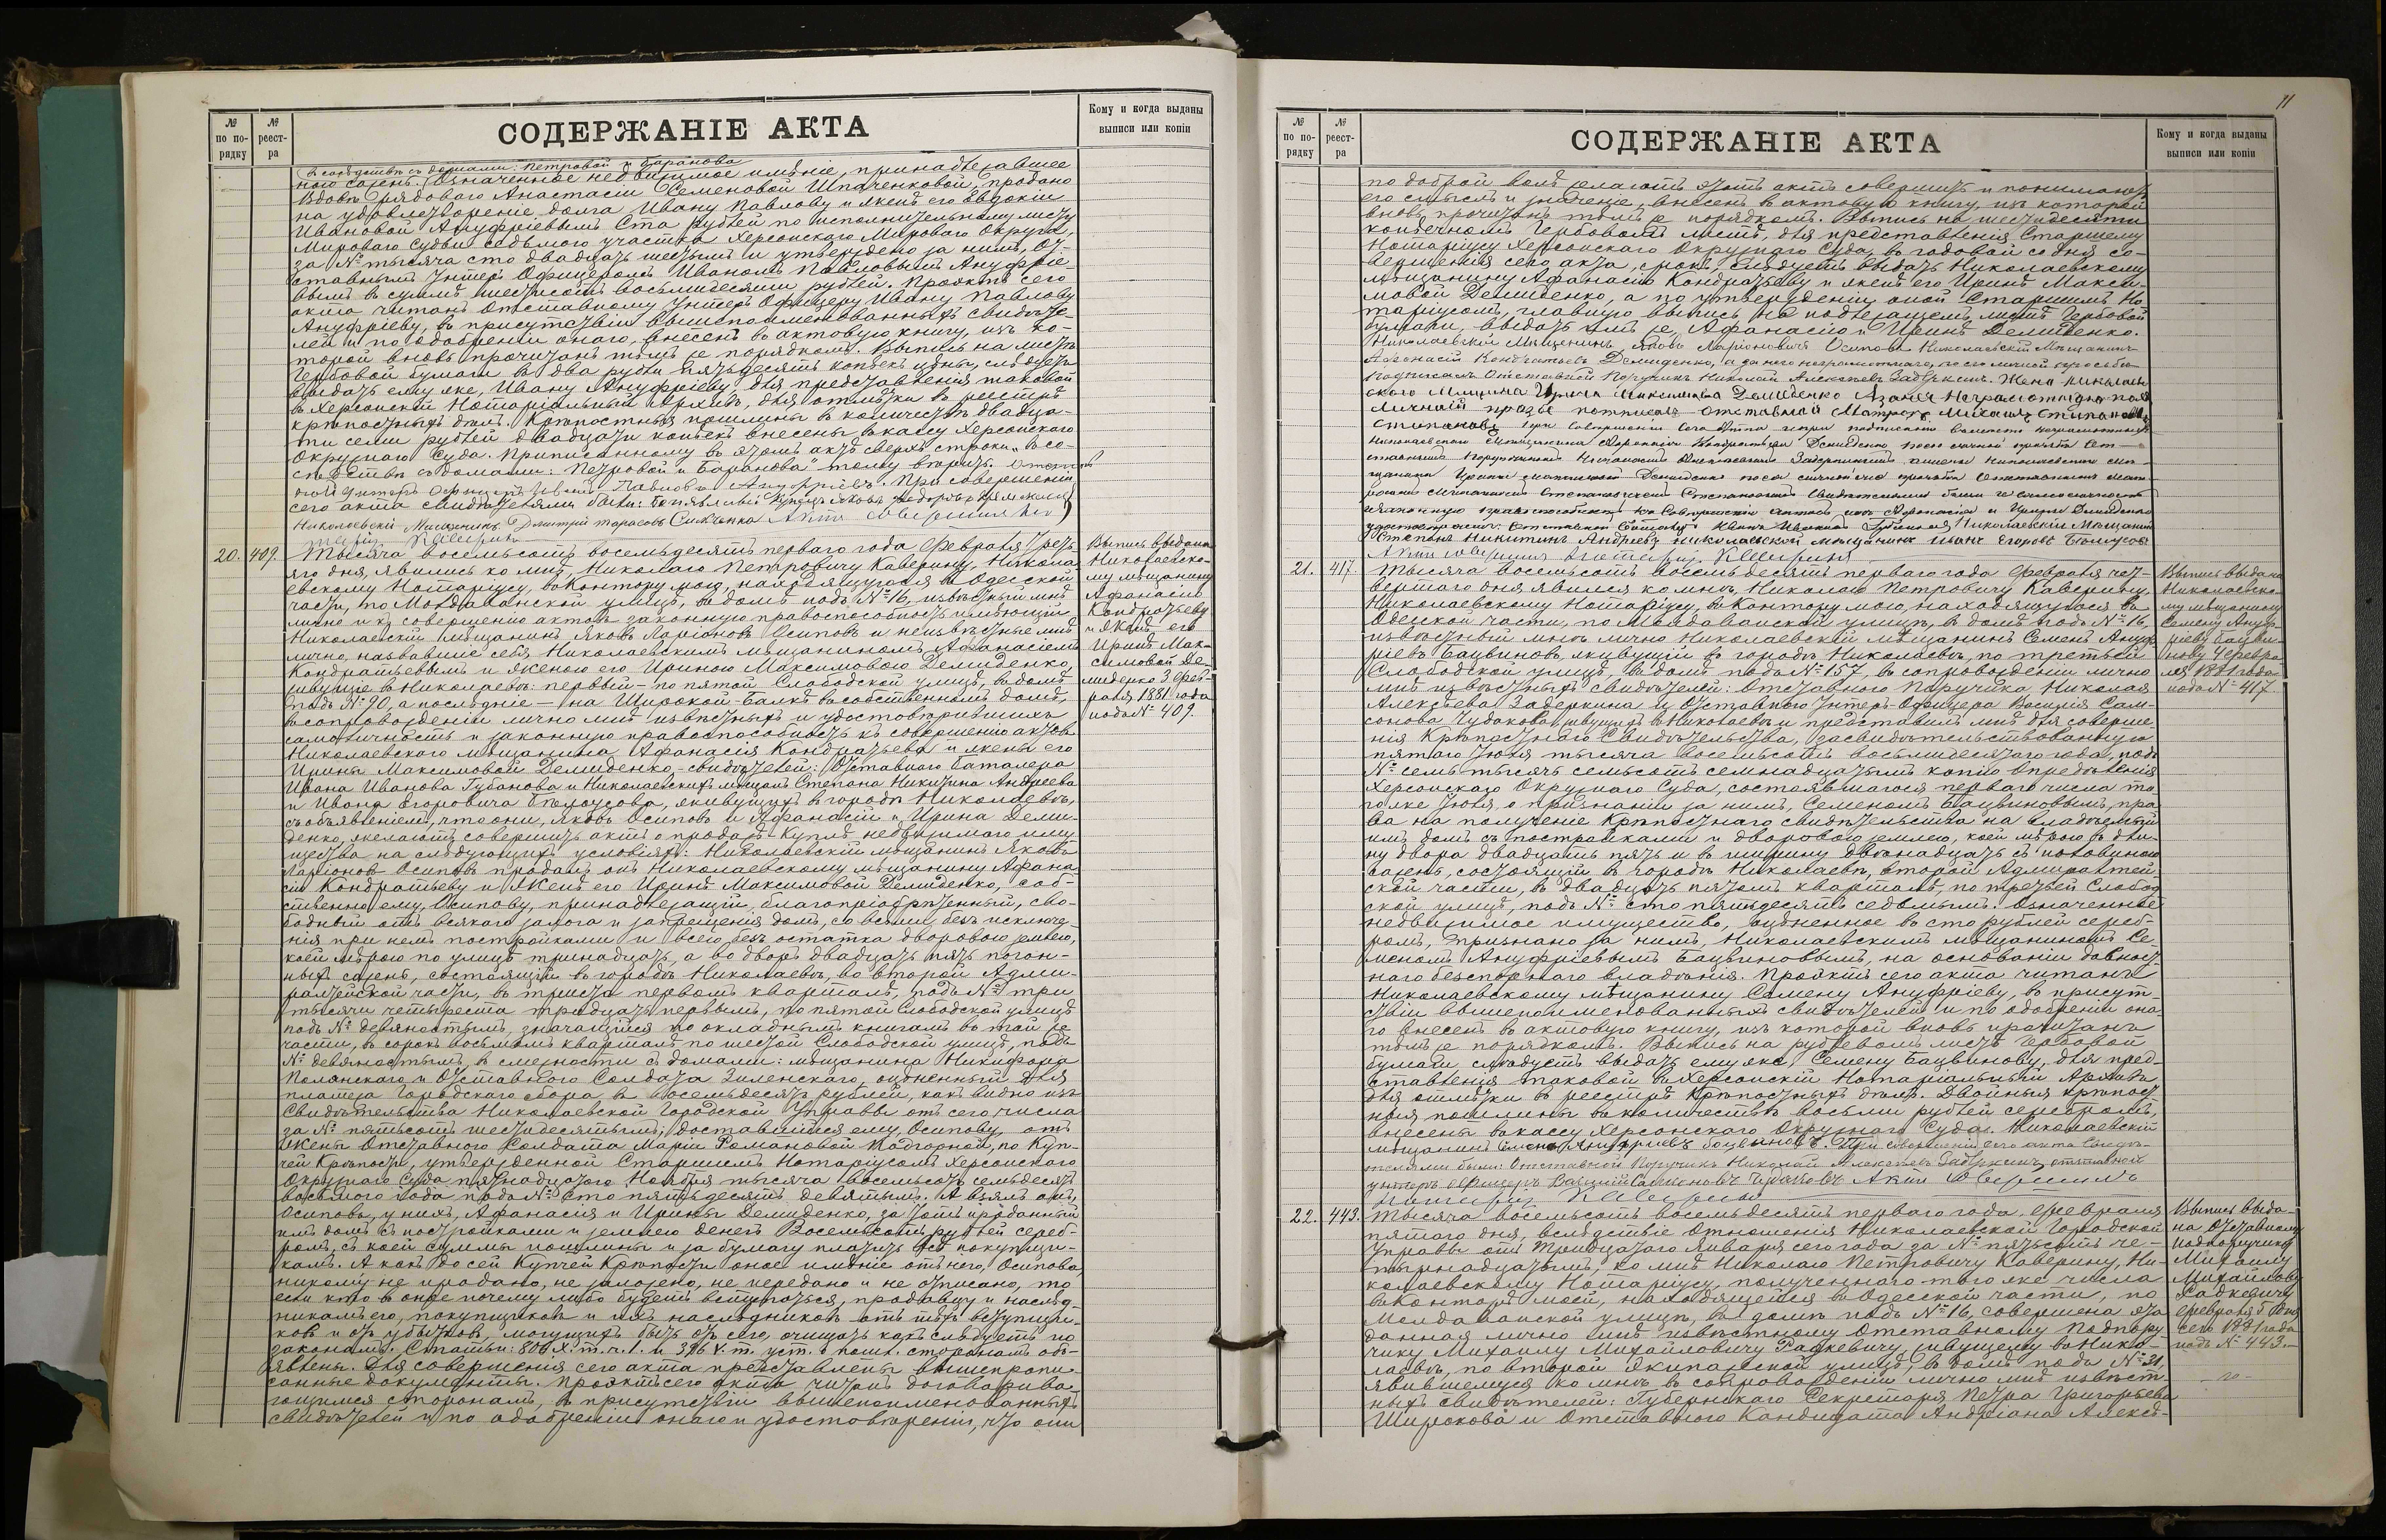 № по по- рядку
№ реест- ра
СОДЕРЖАНІЕ АКТА
Кому и когда выданы выписи или копіи
въ сосѣдствѣ съ домами: Петровой и Баранова
ного сажень. Означенное недвижимое имѣніе, принадлежавшее
Вдовѣ рядоваго Анастасіи Семеновой Шпаченковой, продано
на удовлетвореніе долга Ивану Павлову и женѣ его Евдокіи
Ивановой Ануфріевымъ Ста рублей по исполнительному листу
Мироваго Судьи седьмого участка Херсонскаго Мироваго Округа,
за № тысяча сто двадцать шестымъ и утверждено за нимъ, От-
ставнымъ Унтеръ Офицеромъ Иваномъ Павловымъ Ануфріе-
вымъ въ суммѣ шестисотъ восьмидесяти рублей. Проэктъ сего
акта читанъ Отставному Унтеръ Офицеру Ивану Павлову
Ануфріеву, въ присутствіи вышепоименованныхъ свидѣте-
лей и по одобреніи онаго, внесенъ въ актовую книгу, изъ ко-
торой вновь прочитанъ тѣмъ же порядкомъ. Выпись на листѣ
Гербовой бумаги въ два рубля пятьдесятъ копѣекъ цѣны, слѣдуетъ
выдать ему же, Ивану Ануфріеву для представленія таковой
въ Херсонскій Нотаріальный Архивъ, для отмѣтки въ реестрѣ
крѣпостныхъ дѣлъ. Крѣпостныя пошлины въ количествѣ двадца-
ти семи рублей двадцати копѣекъ внесены въ кассу Херсонскаго
Окружнаго Суда. Приписанному въ этомъ актѣ сверхъ строки „въ со-
сѣдствѣ съ домами: Петровой и Баранова" тому вѣрить. Отстав
ной Унтеръ Офицеръ Иванъ Павловъ Ануфріевъ. При совершеніи
сего акта свидѣтелями были: Яковъ Федоровъ
Николаевскій Мѣщанинъ Дмитрій Тарасовъ Актъ совершилъ Но
таріусъ Каверинъ
20. 409. Тысяча восемьсотъ восемьдесятъ перваго года Февраля треть
яго дня, явились ко мнѣ, Николаю Петровичу Каверину, Никола
евскому Нотаріусу, въ Контору мою, находящуюся въ Одесской
части, по Молдаванской улицѣ, въ домѣ подъ № 16, извѣстный мнѣ
лично и къ совершенію актовъ законную правоспособность имѣющій
Николаевскій мѣщанинъ Яковъ Ларіоновъ Осиповъ и неизвѣстные мнѣ
лично, назвавшіе себя Николаевскимъ мѣщаниномъ Афанасіемъ
Кондратьевымъ и женою его Ириною Максимовою Демиденко,
живущіе въ Николаевѣ: первый - по пятой Слободской улицѣ, въ домѣ
подъ № 90, а послѣдніе - на Широкой-Балкѣ въ собственномъ домѣ,
въ сопровожденіи лично мнѣ извѣстныхъ и удостовѣрившихъ
самоличность и законную правоспособность къ совершенію актовъ
Николаевскаго мѣщанина Афанасія Кондратьева и жены его
Ирины Максимовой Демиденко - свидѣтелей: Отставнаго баталера
Ивана Иванова Губанова и Николаевскихъ мѣщанъ Степана Никитина Андреева
и Ивана Егоровича Бѣлоусова, живущихъ въ городѣ Николаевѣ,
съ объявленіемъ, что они, Яковъ Осиповъ и Афанасій и Ирина Деми-
денко, желаютъ совершить актъ о продажѣ-Куплѣ недвижимаго иму
щества на слѣдующихъ условіяхъ: Николаевскій мѣщанинъ Яковъ
Ларіоновъ Осиповъ продалъ онъ Николаевскому мѣщанину Афана
сію Кондратьеву и Женѣ его Иринѣ Максимовой Демиденко, соб-
ственно ему, Осипову, принадлежащій, благопріобрѣтенный, сво-
бодный отъ всякаго залога и запрещенія домъ, со всѣми, безъ исключе
нія при немъ постройками и всею безъ остатка дворовою землею,
коей мѣрою по улицѣ тринадцать, а во дворъ двадцать пять погон-
ныхъ сажень, состоящій въ городѣ Николаевѣ, во второй Адми-
ралтейской части, въ триста первомъ кварталѣ, подъ № три
тысячи четыреста тридцать первымъ, по пятой Слободской улицѣ
подъ № девяностымъ, значащійся по окладнымъ книгамъ въ той же
части, въ сорокъ восьмомъ кварталѣ по шестой Слободской улицѣ, подъ
№ девяностымъ, въ смежности съ домами: мѣщанина Никифора
Полянскаго и Отставнаго Солдата Зиленскаго, оцѣненный для
платежа Городскаго сбора въ восемьдесятъ рублей, какъ видно изъ
Свидѣтельства Николаевской Городской Управы отъ сего числа
за № пятьсотъ шестидесятымъ; доставшійся ему, Осипову, отъ
Жены Отставнаго Солдата Маріи Романовой Надгорной, по Куп-
чей Крѣпости, утвержденной Старшимъ Нотаріусомъ Херсонскаго
Окружнаго Суда пятнадцатаго Ноября тысяча восемьсотъ семьдесятъ
восьмого года подъ № сто пятьдесятъ девятымъ. А взялъ онъ,
Осиповъ, у нихъ, Афанасія и Ирины Демиденко, за тотъ проданный
имъ домъ съ постройками и землею денегъ Восемьсотъ рублей сереб-
ромъ, съ коей суммы пошлины и за бумагу платить имъ покупщи-
камъ. А какъ до сей Купчей Крѣпости оное имѣніе отъ него, Осипова,
никому не продано, не заложено, не передано и не отписано, то
если кто въ оное почему либо будетъ вступаться, продавцу и наслѣд-
никамъ его, покупщиковъ и ихъ наслѣдниковъ отъ тѣхъ вступщи-
ковъ и отъ убытковъ, могущихъ быть отъ сего, очищать какъ слѣдуетъ по
законамъ. Статьи: 806 X. т. ч. 1. и уст. о пошл. сторонамъ объ-
явлены. Для совершенія сего акта представлены вышепропи-
санные документы. Проэктъ сего акта читанъ договарива-
ющимся сторонамъ, въ присутствіи вышепоименованныхъ
свидѣтелей и по одобреніи онаго и удостовѣреніи, что они
Выпись выдана
Николаевско-
му мѣщанину
Афанасію
Кондратьеву
и Женѣ его
Иринѣ Мак-
симовой Де-
миденко 3 фев-
раля 1881 года
подъ № 409.
11
№ по по- рядку
№ реест- ра
СОДЕРЖАНІЕ АКТА
Кому и когда выданы выписи или копіи
по доброй волѣ желаютъ этотъ актъ совершить и понимаютъ
его смыслъ и значеніе, внесенъ въ актовую книгу, изъ которой
вновь прочитанъ тѣмъ же порядкомъ. Выпись на шестидесяти
копѣечномъ Гербовомъ листѣ, для представленія Старшему
Нотаріусу Херсонскаго Окружнаго Суда, въ годовой со дня со-
вершенія сего акта, срокъ, слѣдуетъ выдать Николаевскому
мѣщанину Афанасію Кондратьеву и женѣ его Иринѣ Макси-
мовой Демиденко, а по утвержденіи оной Старшимъ Но-
таріусомъ, главную выпись на подлежащемъ листѣ Гербовой
бумаги, выдать имъ же, Афанасію и Иринѣ Демиденко.
Николаевскій Мѣщанинъ Яковъ Ларіоновичъ Осиповъ Николаевскій Мѣщанинъ
Афонасій Кондратьевъ Демиденко, а за него неграмотнаго, по его личной просьбѣ
подписалъ Отставной Поручикъ Николай Алексѣевъ Задеркинъ. Жена Николаев
скаго Ирина Максимова Демиденко Азанея Неграмотную поея
Личной прозбе потписалъ отставной Матрозъ Михаилъ Степановъ
Степановъ При совершеніи сего Акта и при подписаніи вмѣсто неграмотныхъ
Николаевскаго Мѣщанина Афонасія Кондратьева Демиденко по его личной просьбѣ От-
ставнымъ Поручикомъ Николаемъ Алексѣевымъ Задеркинымъ
Степана Никитинъ Андреевъ Николаевской мещанинъ Иванъ Егоровъ Белоусовъ
Актъ совершилъ Нотаріусъ Каверинъ
21. 417. Тысяча восемьсотъ восемьдесятъ перваго года Февраля чет-
вертаго дня явился ко мнѣ, Николаю Петровичу Каверину,
Николаевскому Нотаріусу, въ Контору мою, находящуюся въ
Одесской части, по Молдаванской улицѣ, въ домѣ подъ № 16,
извѣстный мнѣ лично Николаевскій мѣщанинъ Семенъ Ануф
ріевъ Бацвиновъ, живущій въ городѣ Николаевѣ, по третьей
Слободской улицѣ, въ домѣ подъ № 157, въ сопровожденіи лично
мнѣ извѣстныхъ свидѣтелей: Отставнаго Поручика Николая
Алексѣева Задеркина и Отставнаго Унтеръ-Офицера Василія Сам-
сонова Чудакова, живущихъ въ Николаевѣ и представилъ мнѣ для соверше
нія Крѣпостнаго Свидѣтельства, засвидѣтельствованную
пятаго Іюля тысяча восемьсотъ восьмидесятаго года, подъ
№ семь тысячъ семьсотъ семнадцатымъ копію опредѣленія
Херсонскаго Окружнаго Суда, состоявшагося перваго числа то-
го же Іюля, о признаніи за нимъ, Семеномъ Бацвиновымъ, пра
ва на полученіе Крѣпостнаго свидѣтельства на владѣемый
имъ домъ съ постройками и дворовою землею, коей мѣрою въ дли-
ну двора двадцать пять и въ ширину двѣнадцать съ половиною
сажень, состоящій въ городѣ Николаевѣ, второй Адмиралтей-
ской части, въ двадцать пятомъ кварталѣ, по третьей Слобод
ской улицѣ, подъ № сто пятьдесятъ седьмымъ. Означенное
недвижимое имущество, оцѣненное въ сто рублей сереб-
ромъ, признано за нимъ, Николаевскимъ мѣщаниномъ Се-
меномъ Ануфріевымъ Бацвиновымъ, на основаніи давност
наго безспорнаго владѣнія. Проэктъ сего акта читанъ
Николаевскому мѣщанину Семену Ануфріеву, въ присут-
ствіи вышепоименованныхъ свидѣтелей и по одобреніи она-
го внесенъ въ актовую книгу, изъ которой вновь прочитанъ
тѣмъ же порядкомъ. Выпись на рублевомъ листѣ Гербовой
бумаги слѣдуетъ выдать ему же, Семену Бацвинову, для пред-
ставленія таковой въ Херсонскій Нотаріальный Архивъ
для отмѣтки въ реестрѣ Крѣпостныхъ дѣлъ. Двойныя крѣпост
ныя пошлины въ количествѣ восьми рублей серебромъ,
внесены въ кассу Херсонскаго Окружнаго Суда. Николаевскій
мѣщанинъ Семенъ Ануфріевъ Боцвиновъ. При совершеніи сего акта свидѣ-
телями были: Отставной Поручикъ Николай Алексѣевъ Задеркинъ, отставной
унтеръ офицеръ Василій Самсоновичъ Чудаковъ Актъ совершилъ
Нотаріусъ Каверинъ
Выпись выдана
Николаевско-
му мѣщанину
Семену Ануф-
ріеву Бацви-
нову 4 февра-
ля 1881 года
подъ № 417.
22. 443. Тысяча восемьсотъ восемьдесятъ перваго года, февраля
пятаго дня, вслѣдствіе Отношенія Николаевской Городской
Управы отъ Тридцатаго Января сего года за № пятьсотъ че-
тырнадцатымъ, ко мнѣ Николаю Петровичу Каверину, Ни-
колаевскому Нотаріусу, полученнаго того же числа
въ Конторѣ моей, находящейся въ Одесской части, по
Молдаванской улицѣ, въ домѣ подъ № 16, совершена эта
данная лично мнѣ извѣстному Отставному Подпору
чику Михаилу Михайловичу Радкевичу, живущему въ Нико-
лаевѣ, по второй Экипажской улицѣ, въ домѣ подъ № 31,
явившемуся ко мнѣ въ сопровожденіи лично мнѣ извѣст
ныхъ свидѣтелей: Губернскаго Секретаря Петра Григорьева
Широкова и Отставного Кандидата Андріана Алексѣ-
Выпись выда-
на Отставному
Подпоручику
Михаилу
Михайлову
Радкевичу
февраля 5 дня
сего 1881 года
подъ № 443.